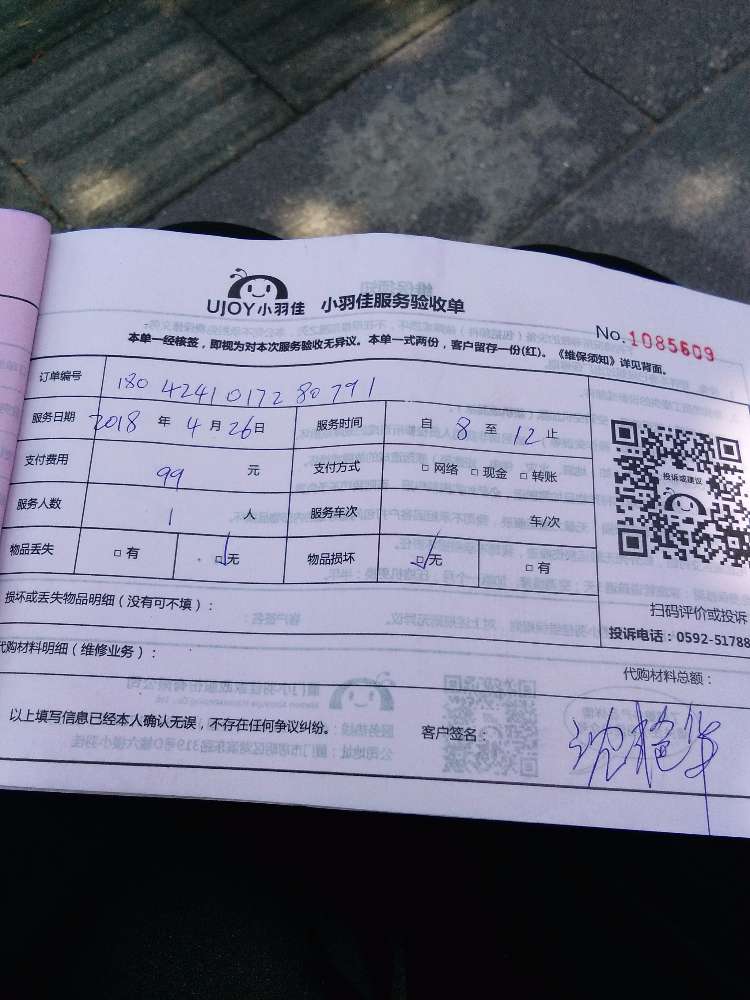 UJOY小羽佳 小羽佳服务验收单
No. 1085609
本单一经核签，即视为对本次服务验收无异议。本单一式两份，客户留存一份(红)。《维保须知》详见背面。
订单编号 1804241017280791
服务日期 2018 年 4 月 26 日 服务时间 自 8 至 12 止
支付费用 99 元 支付方式 □ 网络 □ 现金 □ 转账
服务人数 1 人 服务车次 车/次
物品丢失 □ 有 □无 物品损坏 □无 □ 有
投诉或建议
扫码评价或投诉
投诉电话：0592-51788
损坏或丢失物品明细（没有可不填）：
代购材料明细（维修业务）：
代购材料总额：
以上填写信息已经本人确认无误，不存在任何争议纠纷。 客户签名： 沈艳华